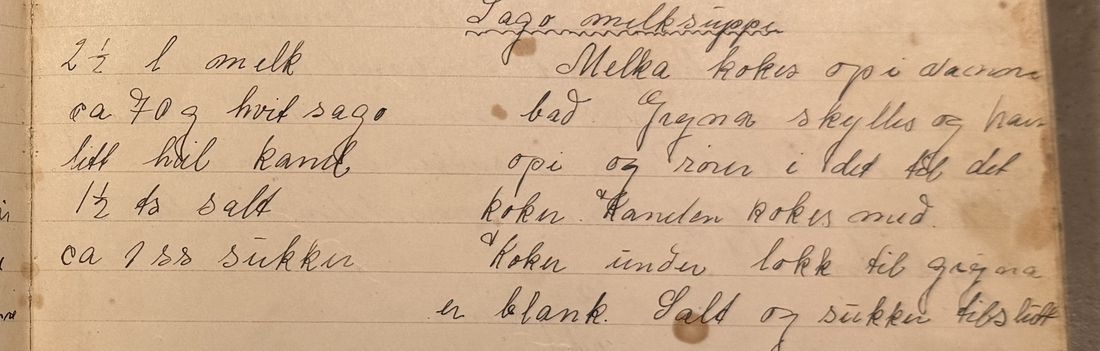 Sago melksuppe
2 ½ l melk
ca 70 g hvit sago
litt hel kanel
1½ ts salt
ca 1 ss sukker
Melka kokes op i damm
bad. Gryna skylles og har
opi og rører i det til det
koker. Kanelen kokes med.
Koker under lokk til gryna
er blank. Salt og sukker tilslutt